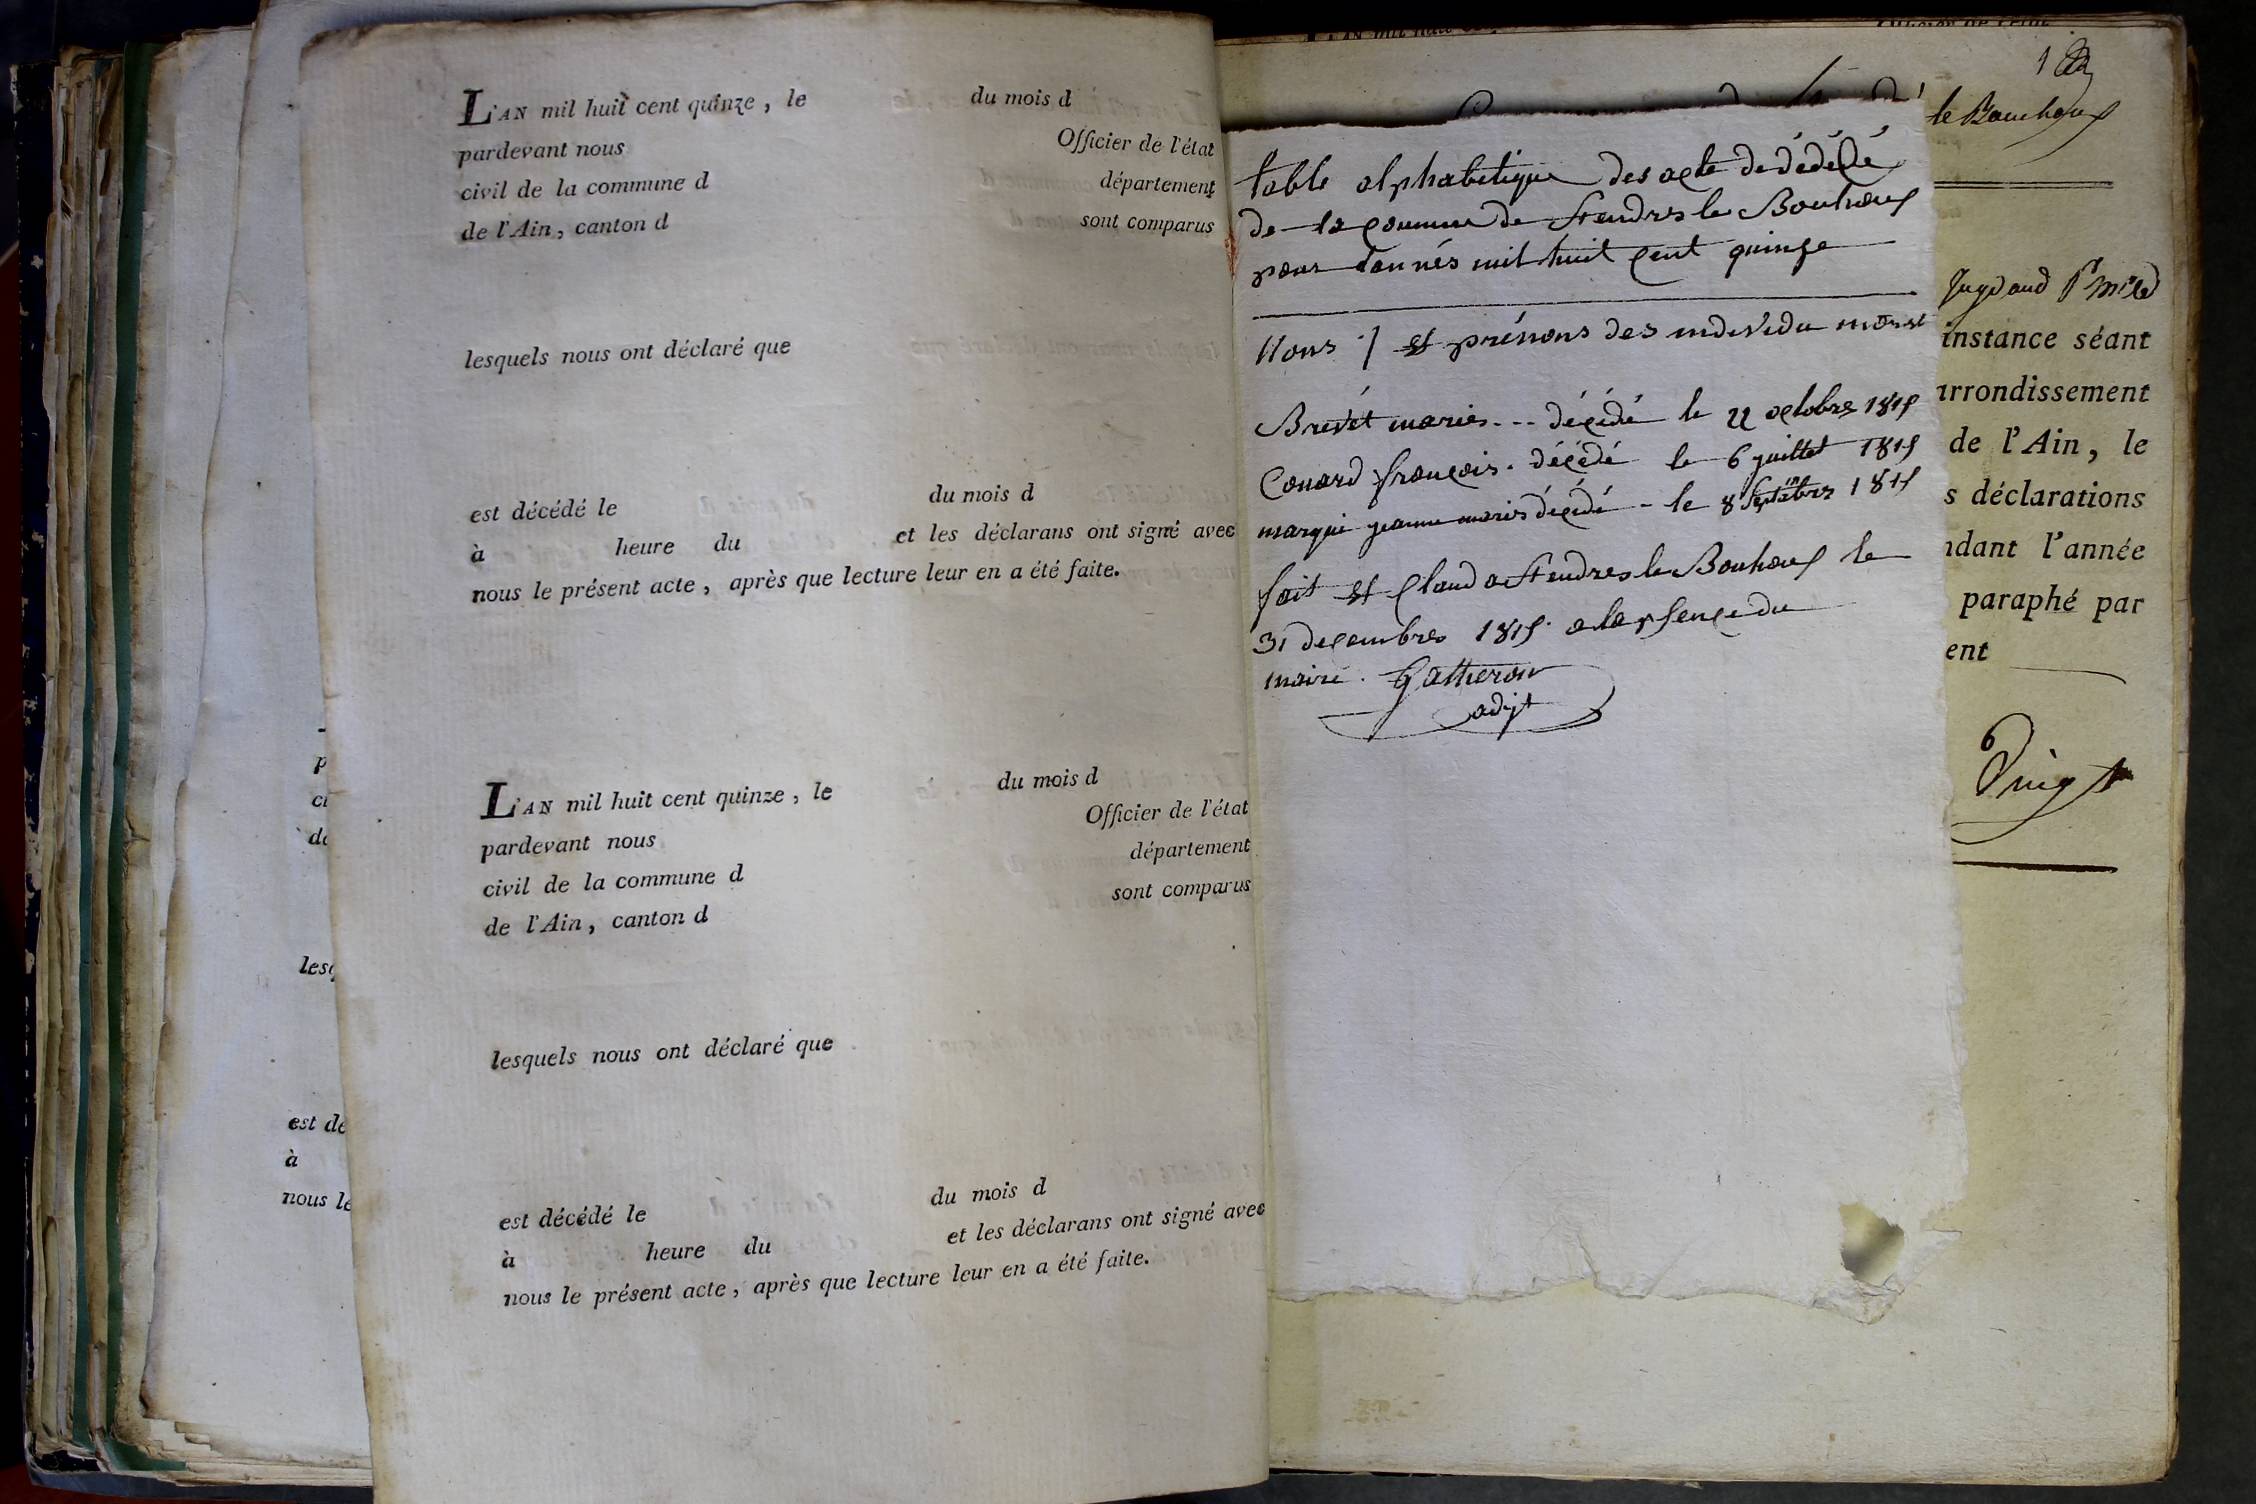 L'AN mil huit cent quinze, le du mois d
pardevant nous Officier de l'état
civil de la commune d département
de l'Ain, canton d sont comparus
lesquels nous ont déclaré que
est décédé le du mois d
à heure du et les déclarans ont signé avec
nous le présent acte, après que lecture leur en a été faite.
L'AN mil huit cent quinze, le du mois d
pardevant nous Officier de l'état
civil de la commune d département
de l'Ain, canton d sont comparus
lesquels nous ont déclaré que
est décédé le du mois d
à heure du et les déclarans ont signé avec
nous le présent acte, après que lecture leur en a été faite.
p
lesq
est dé
à
nous le
table alphabetique des acte de dédélé
de la commune de Andres le Bouhoux
pour lannés mil huit cent quinze
Nons et prénons des indevidu morst
Brevet marie --- décédé le 22 octobre 1815
Conard françois. décédé le 6 juillet 1815
marqui jeanne marie décédé - le 8 Septembre 1815
fait et Cland a Andres le Bouhoux le
31 decembres 1815 a la psence du
maire. Gatheron
adjt
le Bouchoux
instance séant
arrondissement
de l'Ain, le
s déclarations
ndant l'année
paraphé par
ent